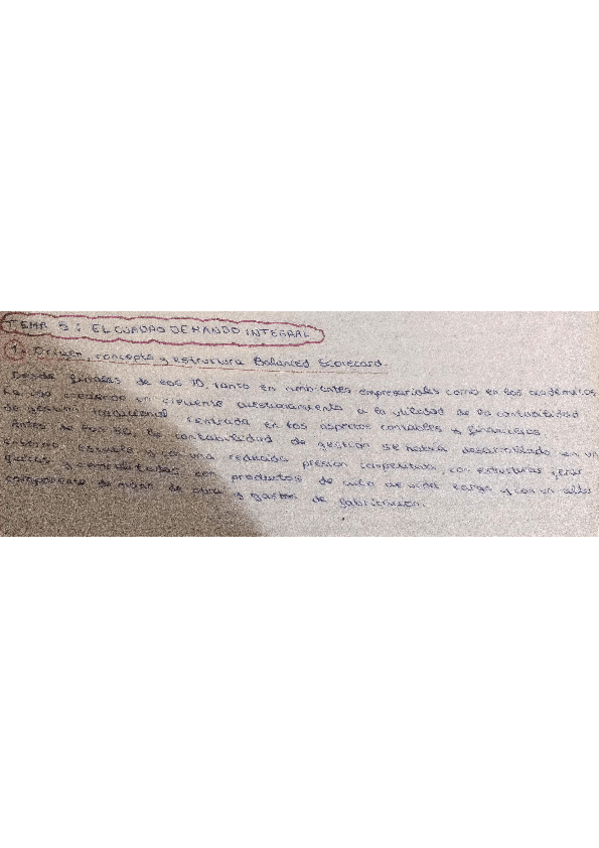 TEMA 5: EL CUADRO DE MANDO INTEGRAL
1. Origen, concepto y estructura Balanced Scorecard.
Desde finales de los 70, tanto en ambientes empresariales como en los académicos
un creciente cuestionamiento a la utilidad de la contabilidad
de gestión tradicional centrada en los aspectos contables y financieros.
Antes de los 80, la contabilidad de gestión se había desarrollado en un
entorno estable y con una reducida presión competitiva, con estructuras jerár
quicas y centralizadas, con productos de ciclo de vida largo y con un alto
componente de mano de obra y gastos de fabricación.